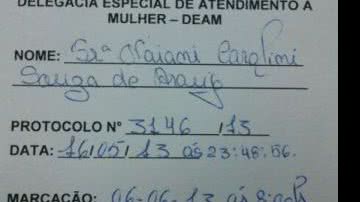 DELEGACIA ESPECIAL DE ATENDIMENTO À
MULHER – DEAM
NOME: Srª Naiani Carolini
Souza de Arauj
PROTOCOLO Nº 3146 / 13
DATA: 16/05/13 às 23:48:56.
MARCAÇÃO: 06-06-13 às 8: